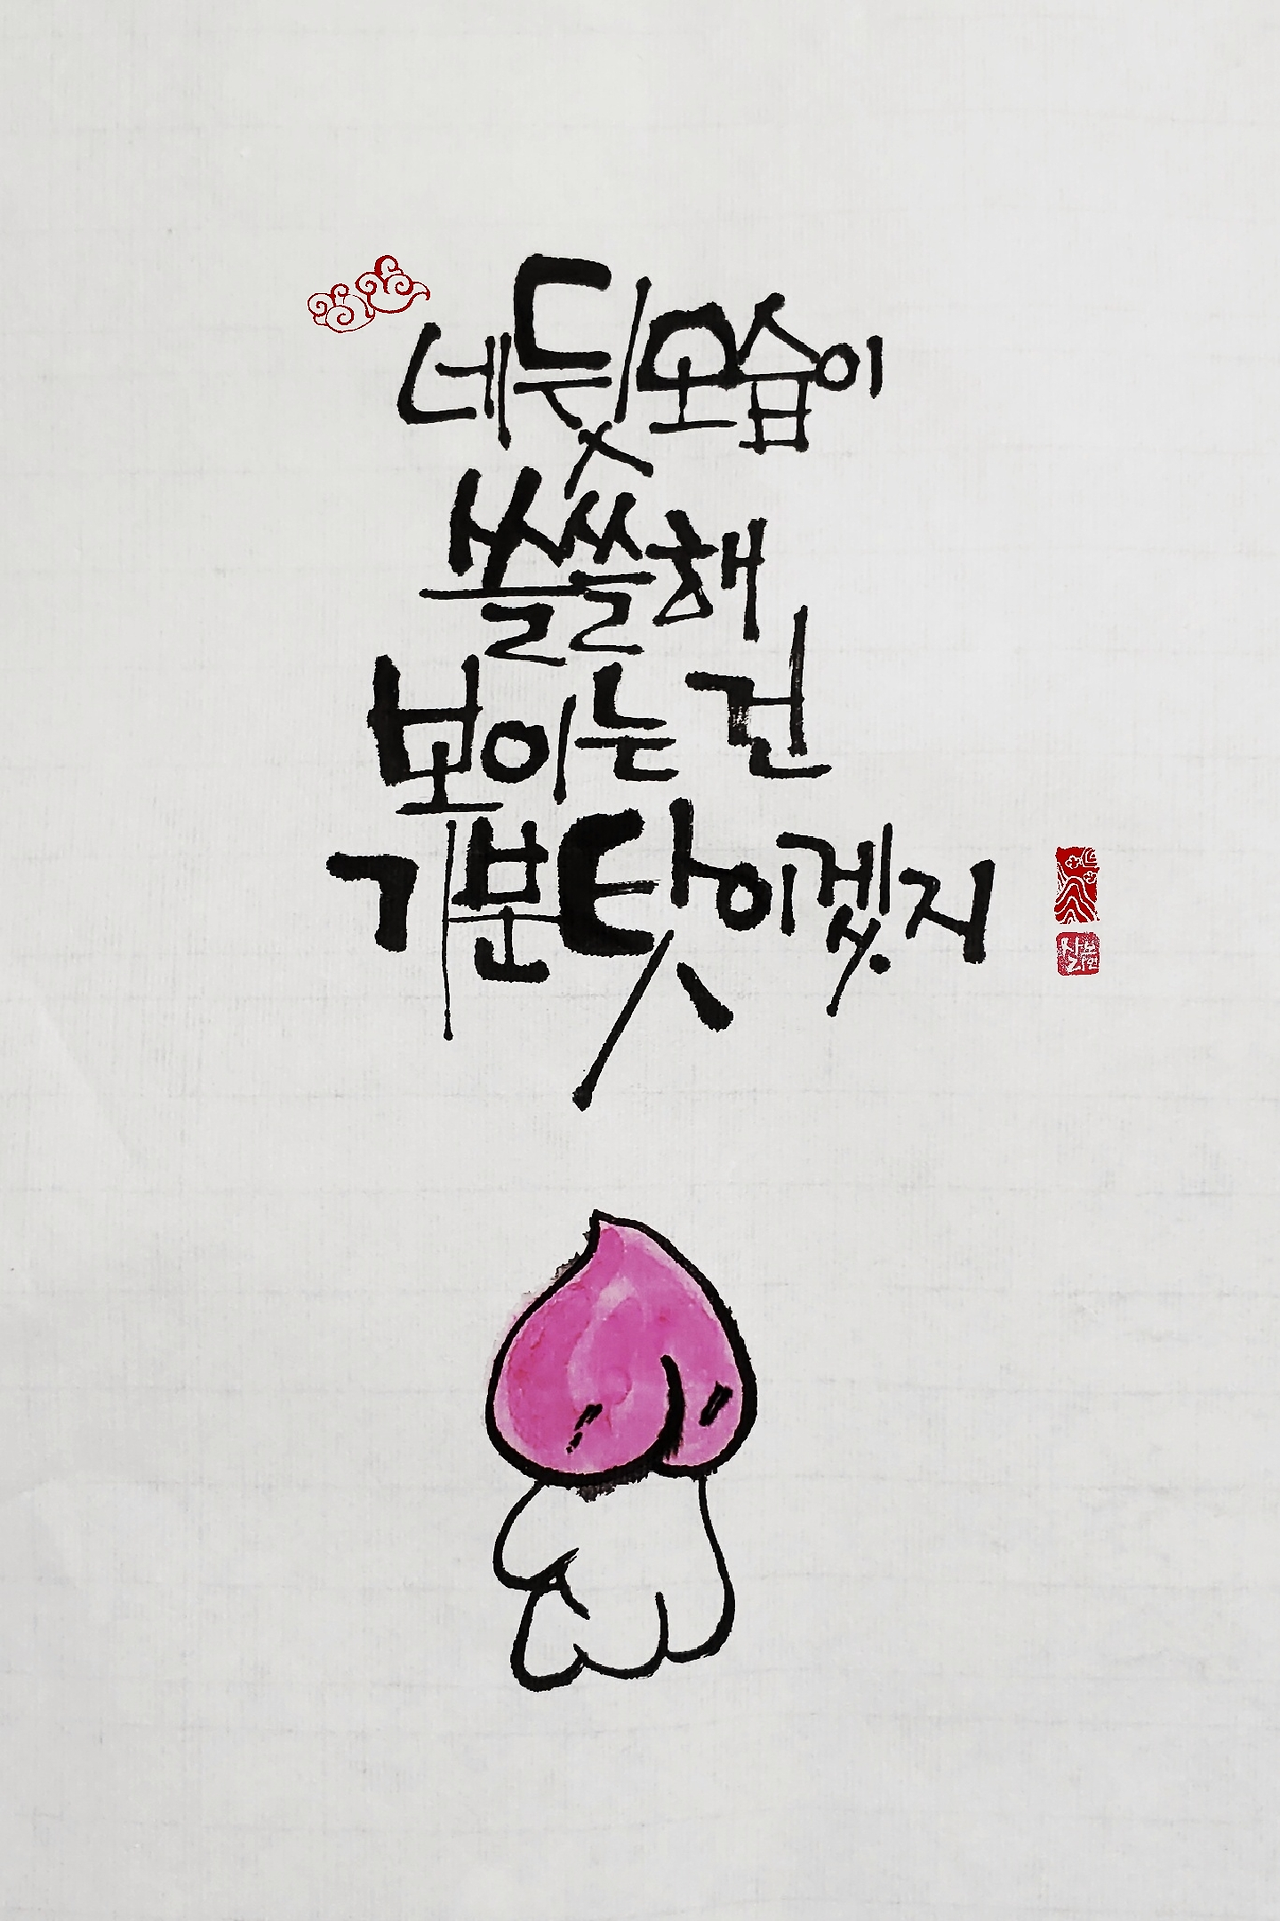 네 뒷모습이
쓸쓸해
보이는 건
기분 탓이겠지